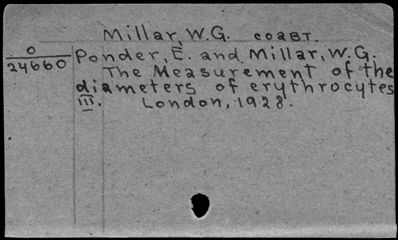 Millar, W.G. соавт.
0
24660
Ponder, E. and Millar, W.G.
The Measurement of the
diameters of erythrocytes
III. London, 1928.